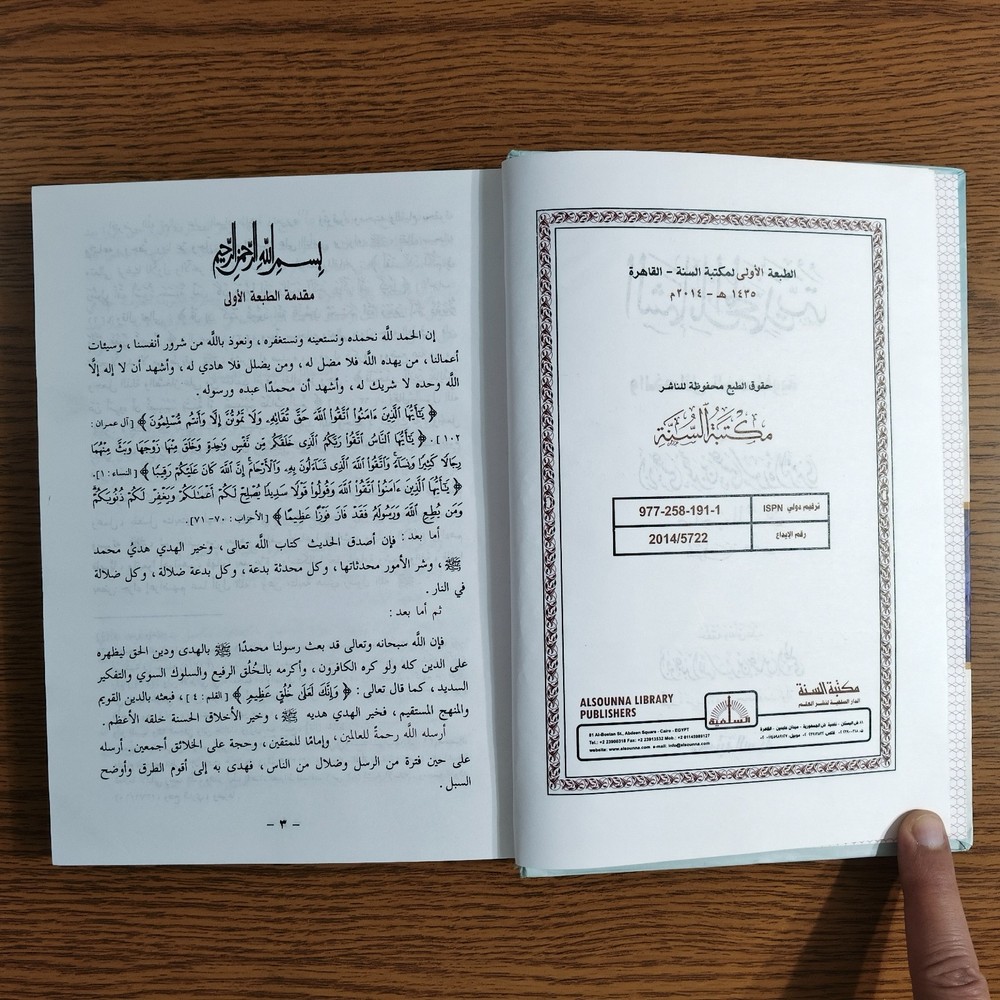 الطبعة الأولى لمكتبة السنة - القاهرة
١٤٣٥ هـ - ٢٠١٤م
حقوق الطبع محفوظة للناشر
مكتبة السنة
ترقيم دولي ISPN 977-258-191-1
رقم الإيداع 2014/5722
ALSOUNNA LIBRARY
PUBLISHERS
السلفية
مكتبة السنة
الدار السلفية لنشر العلم
81 Al-Bostan St., Abdeen Square - Cairo - EGYPT
Tel.: +2 23900318 Fax: +2 23913532 Mob.: +2 01143989127
website: www.alsounna.com e-mail: info@alsounna.com
بسم الله الرحمن الرحيم
مقدمة الطبعة الأولى
إن الحمد للَّه نحمده ونستعينه ونستغفره، ونعوذ باللَّه من شرور أنفسنا، وسيئات
أعمالنا، من يهده اللَّه فلا مضل له، ومن يضلل فلا هادي له، وأشهد أن لا إله إلَّا
اللَّه وحده لا شريك له، وأشهد أن محمدًا عبده ورسوله.
﴿ يَٰٓأَيُّهَا ٱلَّذِينَ ءَامَنُوا۟ ٱتَّقُوا۟ ٱللَّهَ حَقَّ تُقَاتِهِۦ وَلَا تَمُوتُنَّ إِلَّا وَأَنتُم مُّسْلِمُونَ ﴾ [آل عمران:
١٠٢]. ﴿ يَٰٓأَيُّهَا ٱلنَّاسُ ٱتَّقُوا۟ رَبَّكُمُ ٱلَّذِى خَلَقَكُم مِّن نَّفْسٍ وَٰحِدَةٍ وَخَلَقَ مِنْهَا زَوْجَهَا وَبَثَّ مِنْهُمَا
رِجَالًا كَثِيرًا وَنِسَآءً وَٱتَّقُوا۟ ٱللَّهَ ٱلَّذِى تَسَآءَلُونَ بِهِۦ وَٱلْأَرْحَامَ إِنَّ ٱللَّهَ كَانَ عَلَيْكُمْ رَقِيبًا ﴾ [النساء: ١].
﴿ يَٰٓأَيُّهَا ٱلَّذِينَ ءَامَنُوا۟ ٱتَّقُوا۟ ٱللَّهَ وَقُولُوا۟ قَوْلًا سَدِيدًا يُصْلِحْ لَكُمْ أَعْمَٰلَكُمْ وَيَغْفِرْ لَكُمْ ذُنُوبَكُمْ
وَمَن يُطِعِ ٱللَّهَ وَرَسُولَهُۥ فَقَدْ فَازَ فَوْزًا عَظِيمًا ﴾ [الأحزاب: ٧٠- ٧١].
أما بعد: فإن أصدق الحديث كتاب اللَّه تعالى، وخير الهدي هديُ محمد
ﷺ، وشر الأمور محدثاتها، وكل محدثة بدعة، وكل بدعة ضلالة، وكل ضلالة
في النار.
ثم أما بعد:
فإن اللَّه سبحانه وتعالى قد بعث رسولنا محمدًا ﷺ بالهدى ودين الحق ليظهره
على الدين كله ولو كره الكافرون، وأكرمه بالخُلُق الرفيع والسلوك السوي والتفكير
السديد، كما قال تعالى: ﴿ وَإِنَّكَ لَعَلَىٰ خُلُقٍ عَظِيمٍ ﴾ [القلم: ٤]، فبعثه بالدين القويم
والمنهج المستقيم، فخير الهدي هديه ﷺ، وخير الأخلاق الحسنة خلقه الأعظم.
أرسله اللَّه رحمةً للعالمين، وإمامًا للمتقين، وحجة على الخلائق أجمعين. أرسله
على حين فترة من الرسل وضلال من الناس، فهدى به إلى أقوم الطرق وأوضح
السبل.
- ٣ -